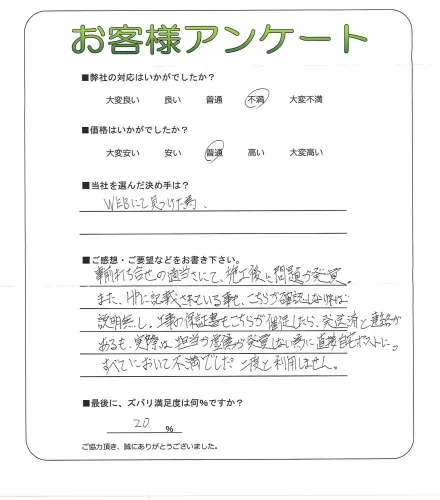 お客様アンケート
■弊社の対応はいかがでしたか?
大変良い 良い 普通 不満 大変不満
■価格はいかがでしたか?
大変安い 安い 普通 高い 大変高い
■当社を選んだ決め手は?
WEBにて見つけた為。
■ご感想・ご要望などをお書き下さい。
打ち合せの担当にて、施工後に問題が発覚。
また、HPに記載されている事も、こちらが確認しなければ
説明無し。工事の保証書もこちらが催促したら、発送済と連絡が
あるも、実際は担当の 発覚しない為に直接自宅ポストに。
すべてにおいて不満でした。二度と利用しません。
■最後に、ズバリ満足度は何%ですか?
20 %
ご協力頂き、誠にありがとうございました。